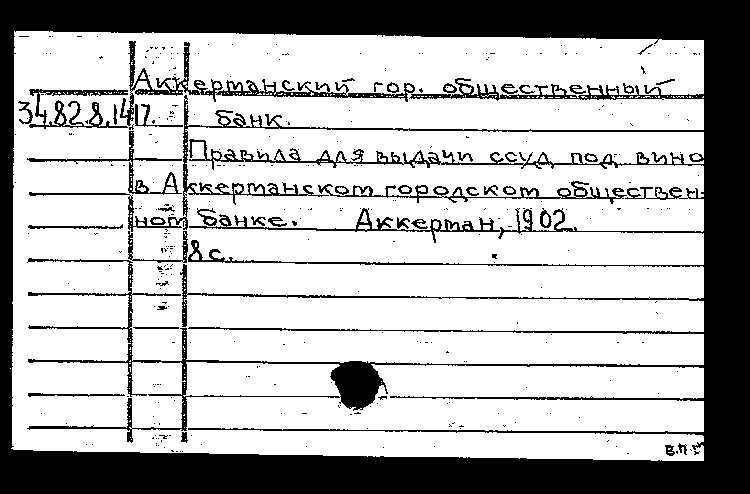 Аккерманский гор. общественный
34.82.8.1417. банк.
Правила для выдачи ссуд под вино
в Аккерманском городском обществен-
ном банке. Аккерман, 1902.
8 с.